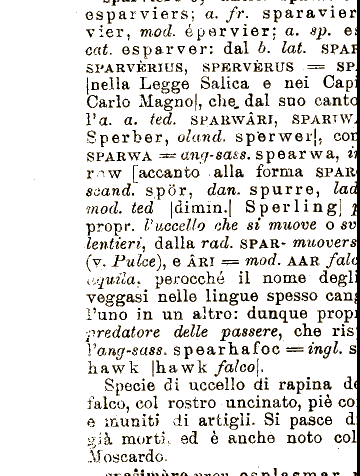 esparviers; a. fr. sparavier
vier, mod. épervier; a. sp. es
cat. esparver: dal b. lat. SPAR
SPARVÈRIUS, SPERVÈRUS = SP
|nella Legge Salica e nei Capi
Carlo Magno|, che dal suo canto
l'a. a. ted. SPARWÂRI, SPARIW
Sperber, oland. sperwer|, com
SPARWA = ang-sass. spearwa, in
row [accanto alla forma SPAR
scand. spör, dan. spurre, lad
mod. ted |dimin.| Sperling] p
propr. l'uccello che si muove o sv
lentieri, dalla rad. SPAR- muovers
(v. Pulce), e ÂRI = mod. AAR falc
aquila, perocché il nome degli
veggasi nelle lingue spesso cang
l'uno in un altro: dunque propr
predatore delle passere, che ris
l'ang-sass. spearhafoc = ingl. s
hawk |hawk falco|.
Specie di uccello di rapina de
falco, col rostro uncinato, piè co
e muniti di artigli. Si pasce d
già morti, ed è anche noto col
Moscardo.